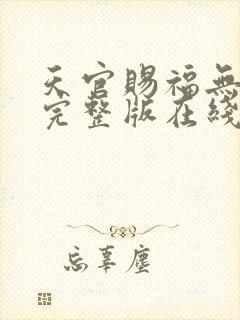 天官賜福無
完整版在綫
忘辜塵